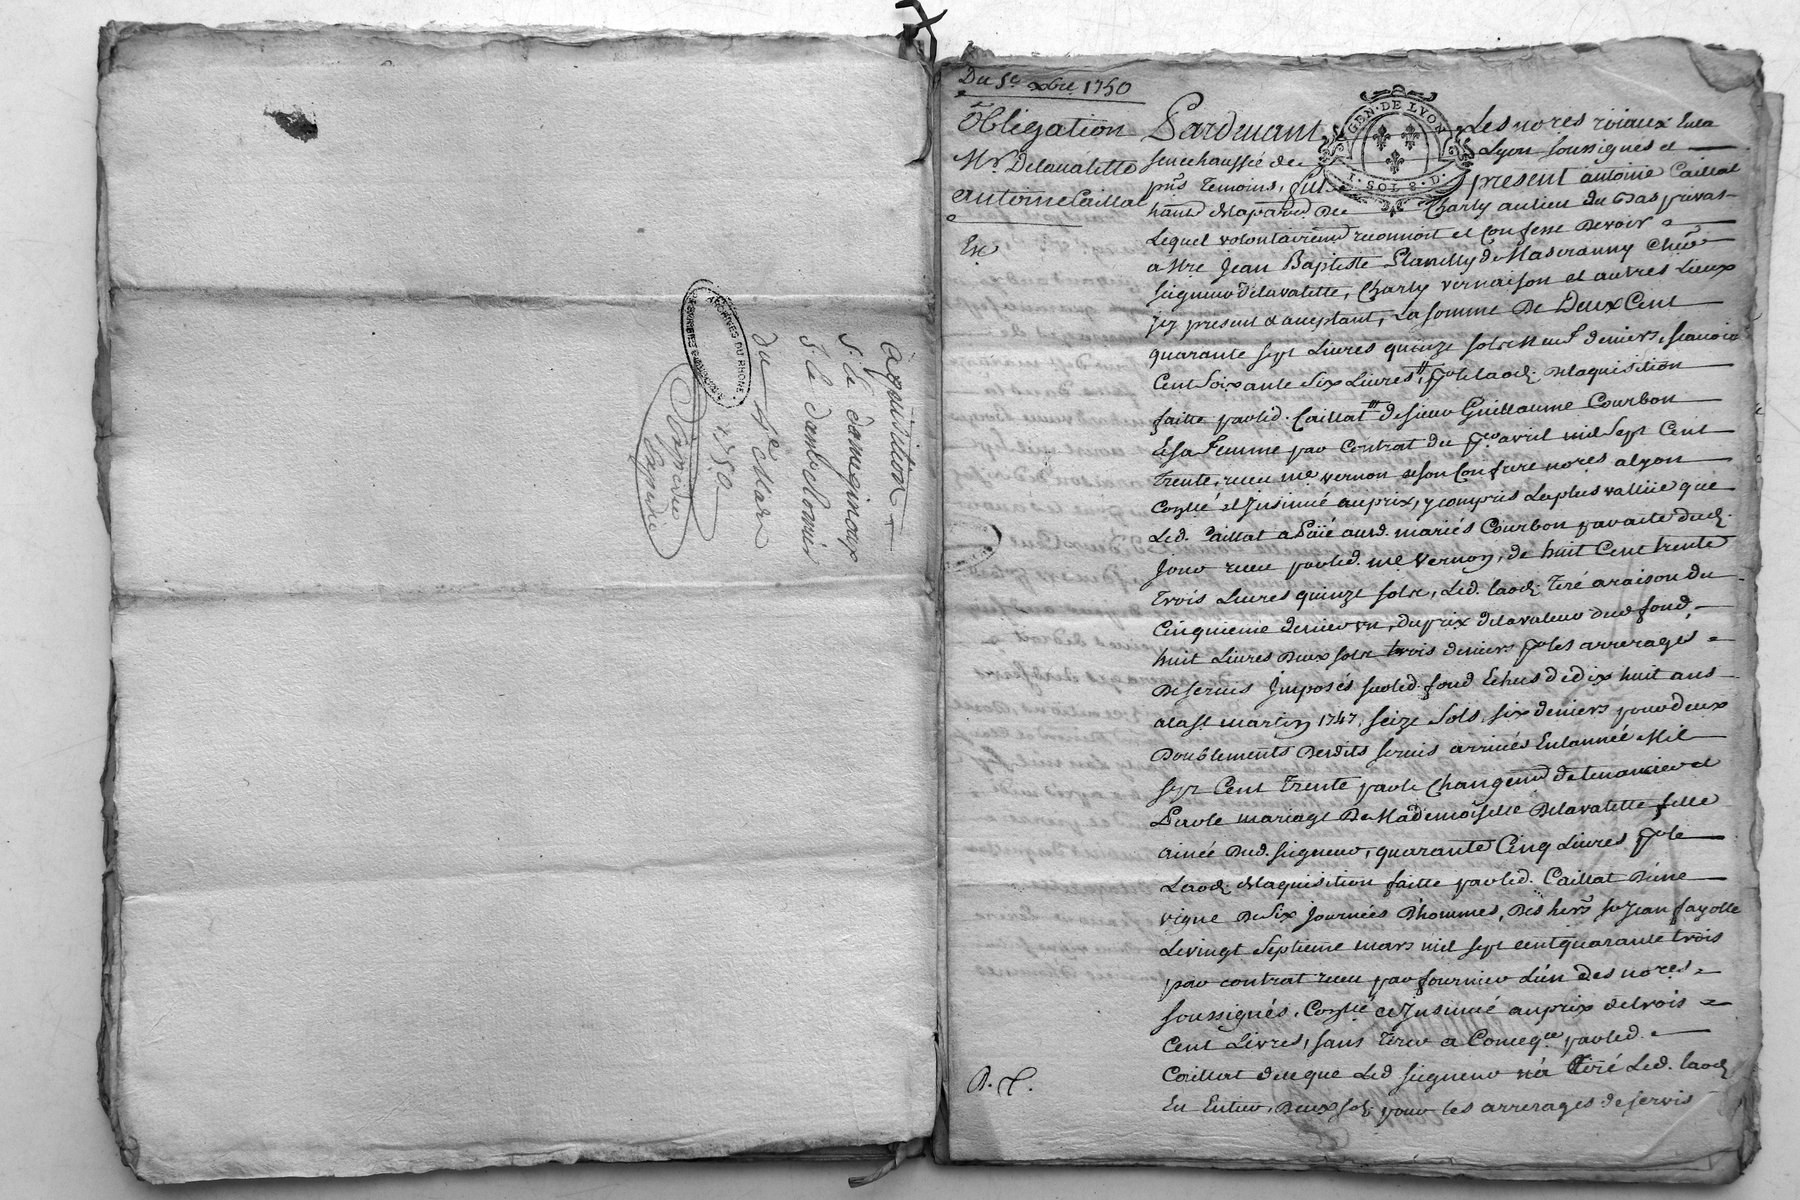 aquisition
s.r de damiginoux
s.r de dambelouin
du 4e Mar
1750
Expediée
Signifié
ARCHIVES DU RHONE
Du 5e xbre 1750
Obligation
Mr. Delavalette
antoine Caillat
Ex
GEN. DE LYON
1. SOL 8. D.
Pardevant Les nores roiaux En la
senechaussée de Lyon soussignés et
pnts Temoins, fut present antoine Caillat
habit de la parr. De Charly au lieu du bas privas
Lequel volontairemt reconnoit et Confesse Devoir
a Mre Jean Baptiste Stanilly de Mascranny Cheer
seigneur delavalette, Charly vernaison et autres Lieux
jcy present et aceptant, La somme De Deux Cent
quarante sept Livres quinze sols Neuf deniers, scavoir
Cent Soixante Six Livres, pr le laod Delaquisition
faitte par led. Caillat de sieur Guillaume Courbon
Et sa Femme par Contrat du per avril mil Sept Cent
Trente, receu me vernon et son Confrere nores a Lyon
Conllé et Jnsinué au prix, y compris La plus vallüe que
Led. Caillat a Païé aud. mariés Courbon par acte dud.
Jour receu par led. me Vernon, de huit Cent trente
Trois Livres quinze sols, Led. laod Tiré a raison du
Cinquieme denier un, du prix de la valeur dud fond,
huit Livres Deux sols trois deniers pr les arrerages
De servis Jmposés sur led. fond Echus de dix huit ans
a la st martin 1747, seize Sols, six deniers pour deux
Doublements Desdits servis arrivés En lannée Mil
sept Cent Trente par le Changemt de tenancier et
Par le mariage De Mademoiselle Delavalette fille
ainée Dud. seigneur, quarante Cinq Livres pr le
Laod de laquisition faitte par led. Caillat D'une
vigne De Six Journées D'hommes, Des hers sr Jean fayolle
Le vingt Septieme mars mil sept cent quarante trois
par contrat receu par fournier L'un des nores
soussignés, Conllé et Jnsinué au prix de trois
Cent Livres, sans tirer a Conseqce par led.
Caillat de ce que Led seigneur n'a Tiré Led. laod
En Entier, Deux sols pour les arrerages de servis